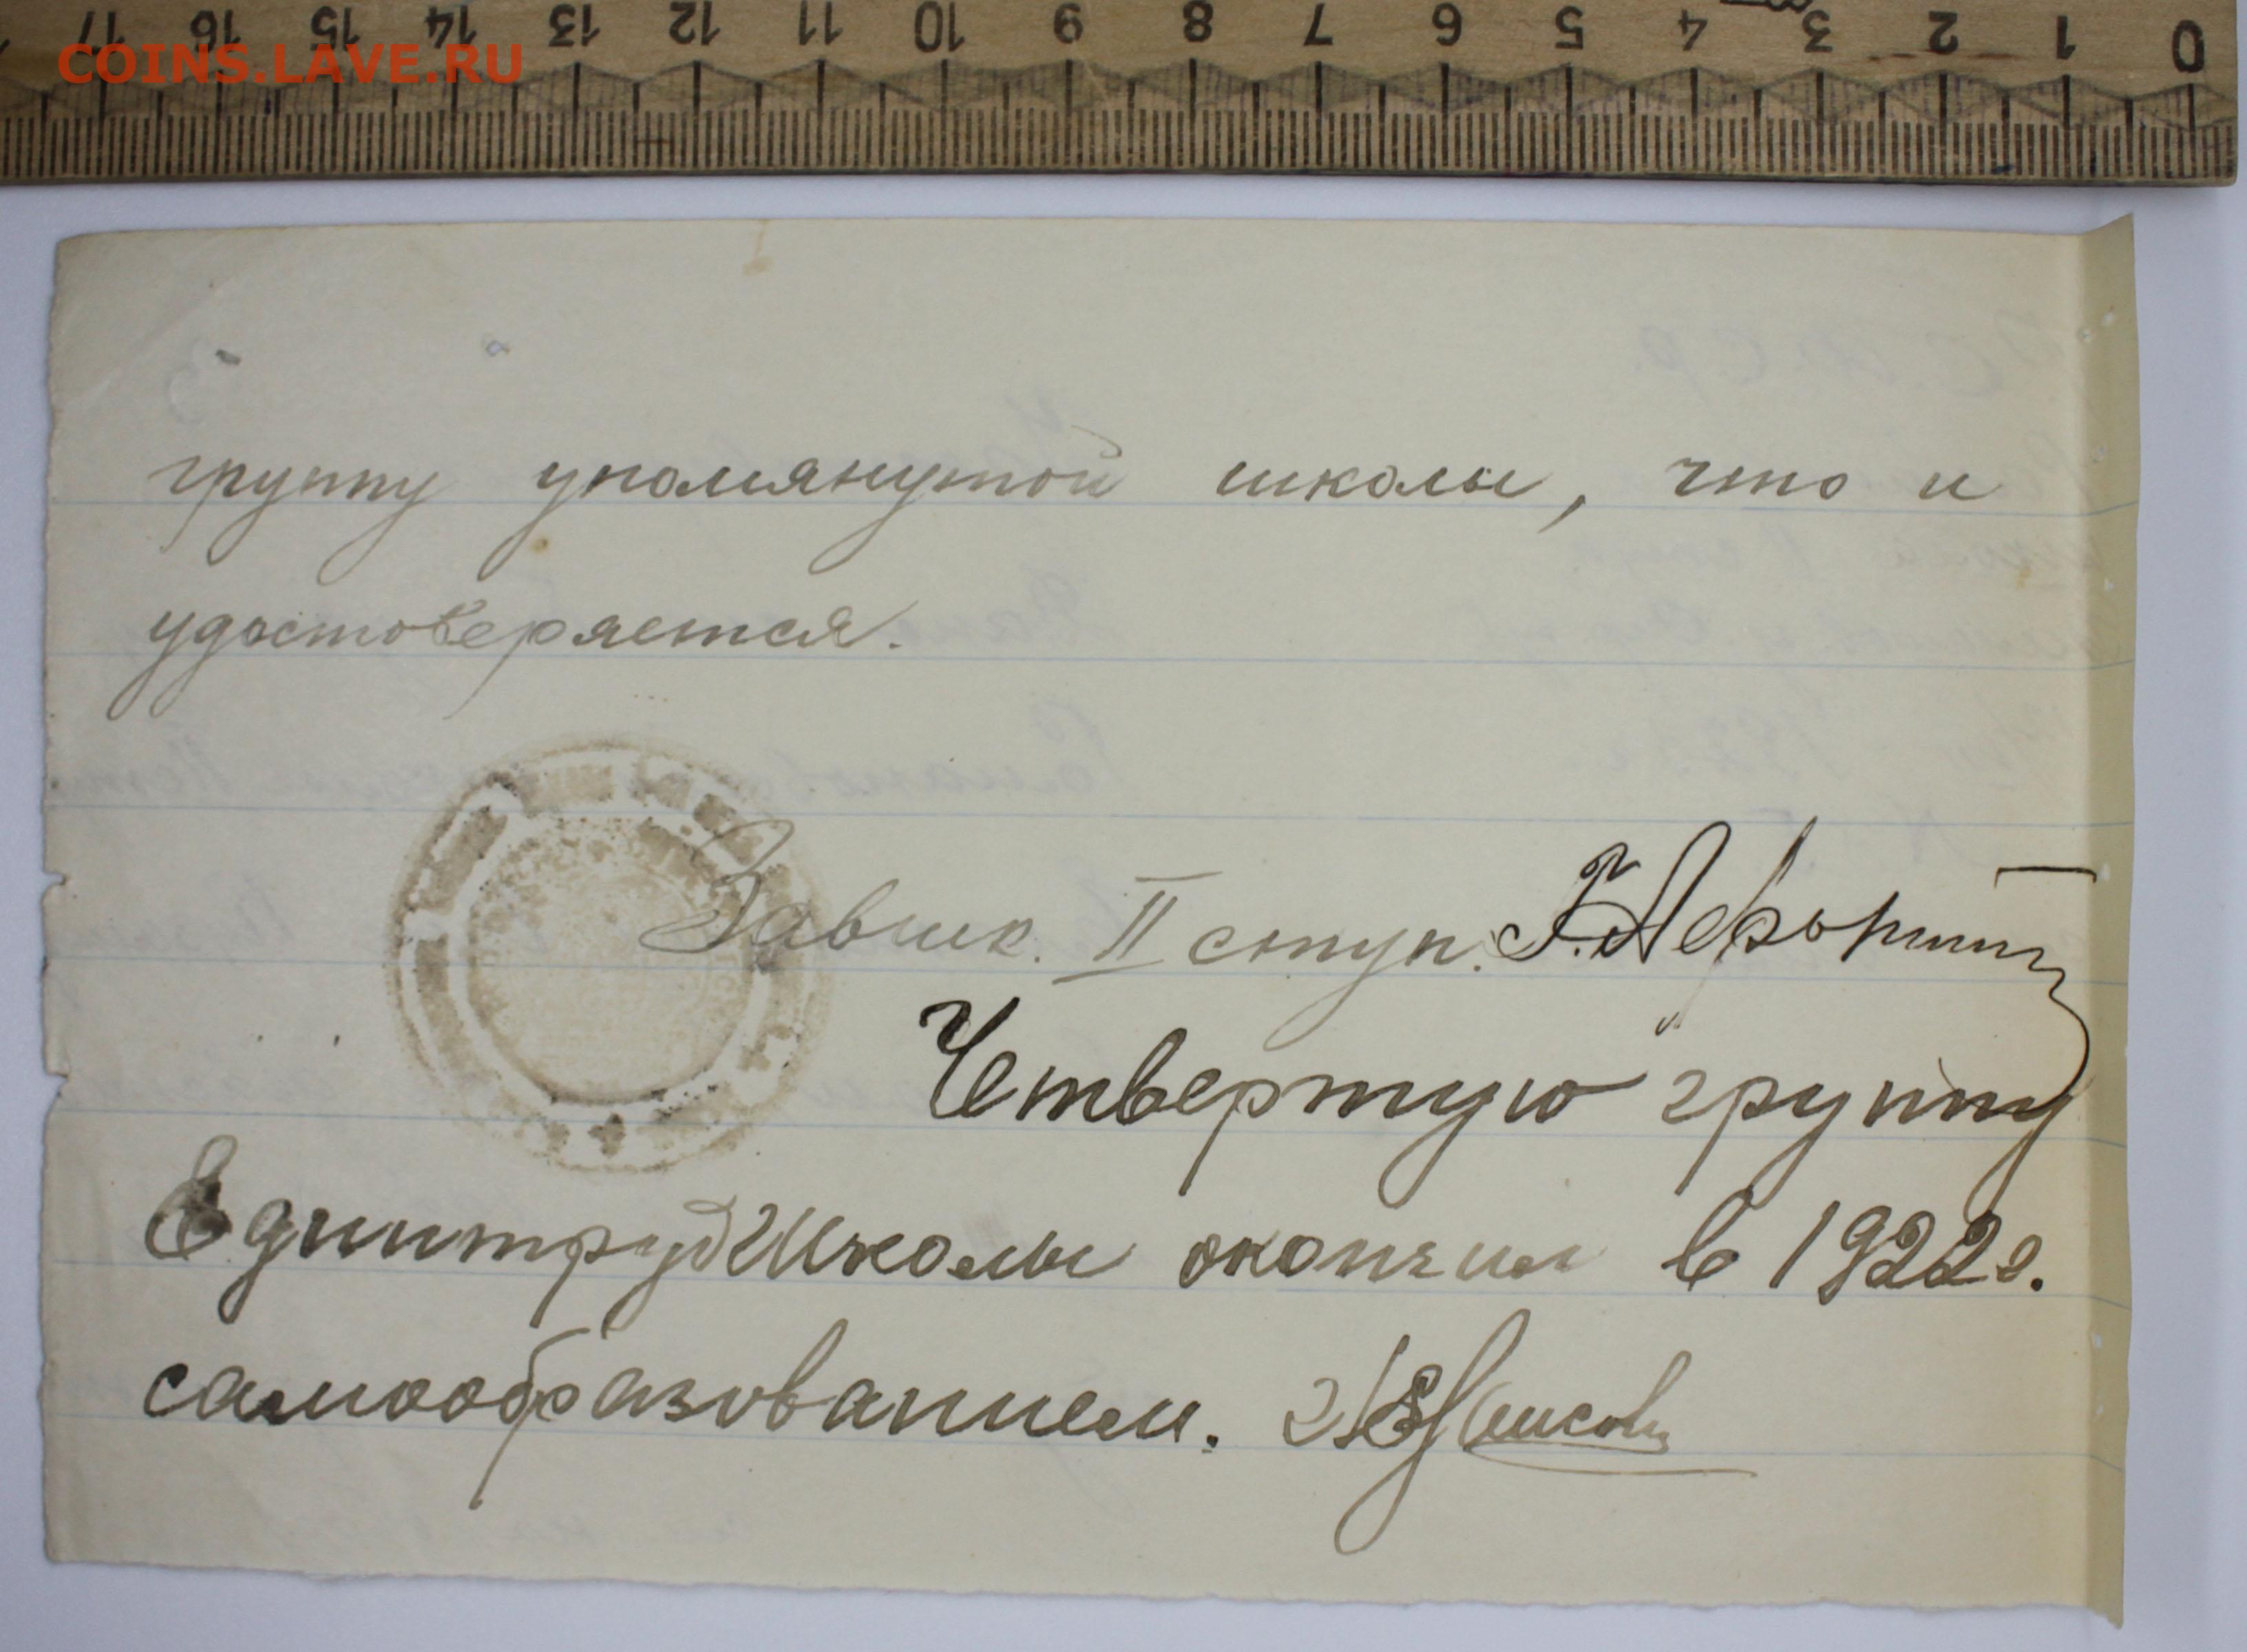 17 16 15 14 13 12 11 10 9 8 7 6 5 4 3 2 1 0
COINS.LAVE.RU
группу упомянутой школы, что и
удостоверяется.
Завшк. II ступ.
Четвертую группу
ЕдинтрудШколы окончил в 1922г.
самообразованием.